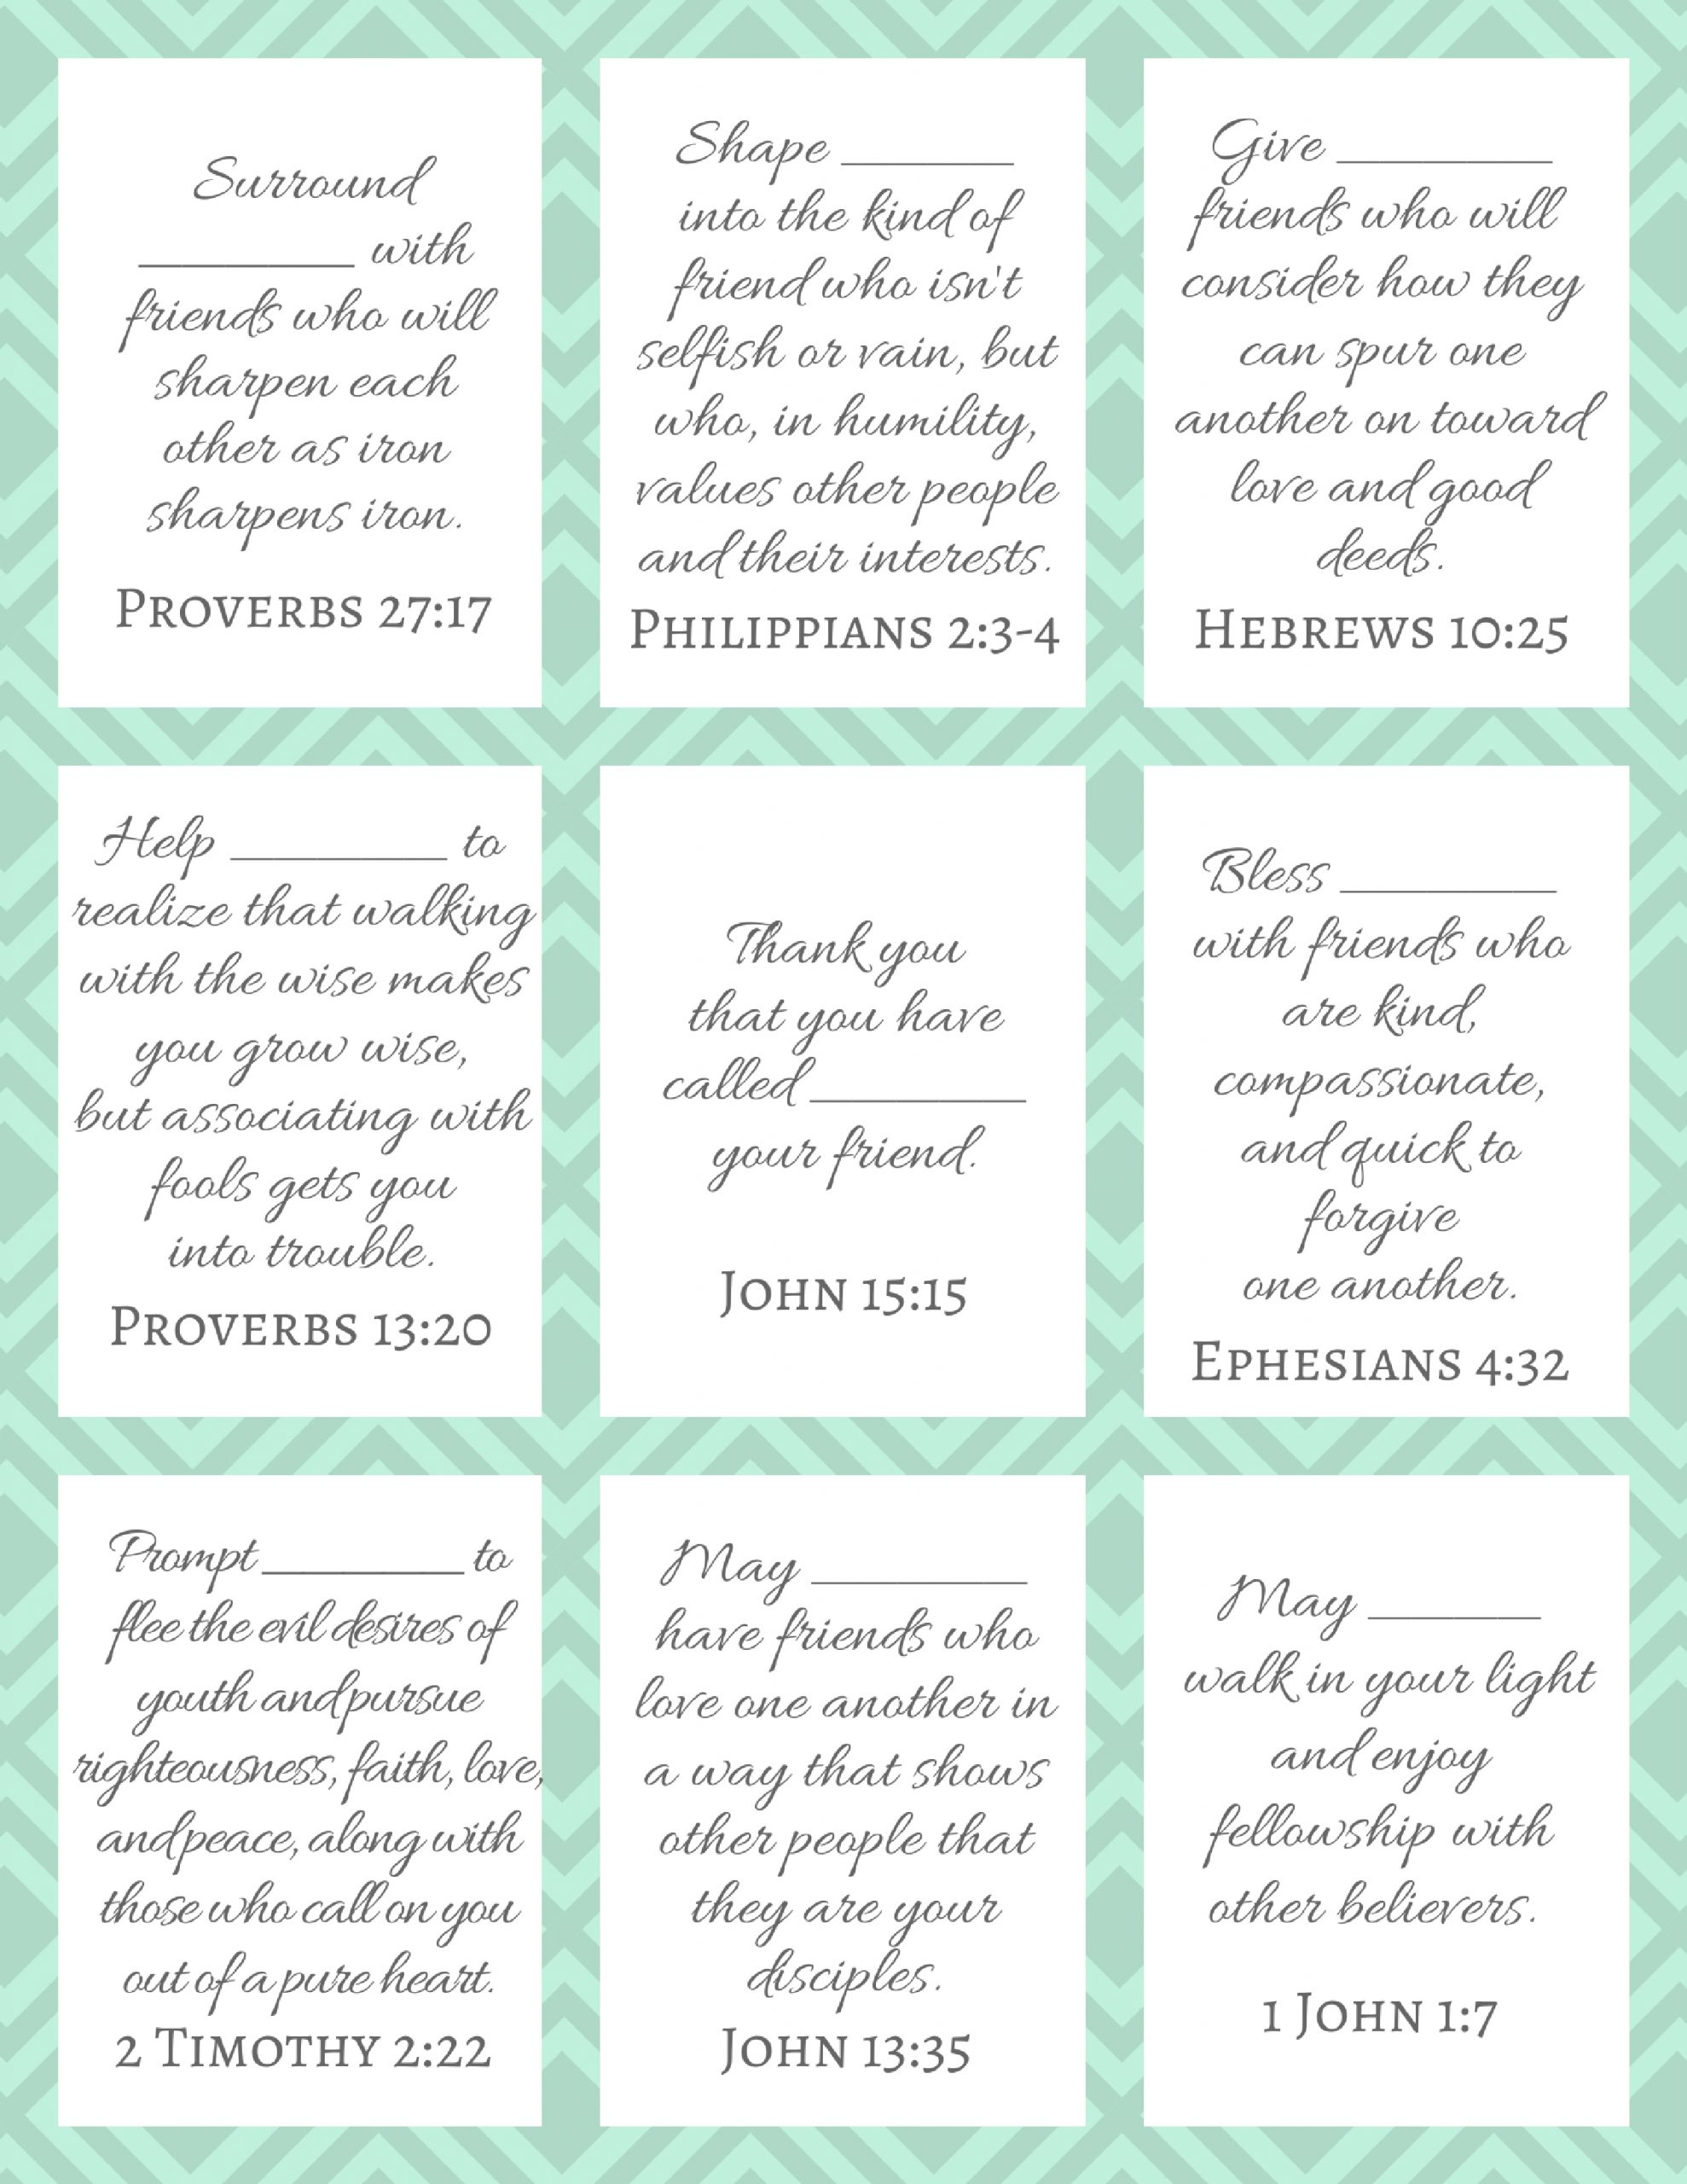 Surround
__________ with
friends who will
sharpen each
other as iron
sharpens iron.
PROVERBS 27:17
Shape ________
into the kind of
friend who isn't
selfish or vain, but
who, in humility,
values other people
and their interests.
PHILIPPIANS 2:3-4
Give __________
friends who will
consider how they
can spur one
another on toward
love and good
deeds.
HEBREWS 10:25
Help __________ to
realize that walking
with the wise makes
you grow wise,
but associating with
fools gets you
into trouble.
PROVERBS 13:20
Thank you
that you have
called __________
your friend.
JOHN 15:15
Bless __________
with friends who
are kind,
compassionate,
and quick to
forgive
one another.
EPHESIANS 4:32
Prompt __________ to
flee the evil desires of
youth and pursue
righteousness, faith, love,
and peace, along with
those who call on you
out of a pure heart.
2 TIMOTHY 2:22
May __________
have friends who
love one another in
a way that shows
other people that
they are your
disciples.
JOHN 13:35
May ________
walk in your light
and enjoy
fellowship with
other believers.
1 JOHN 1:7